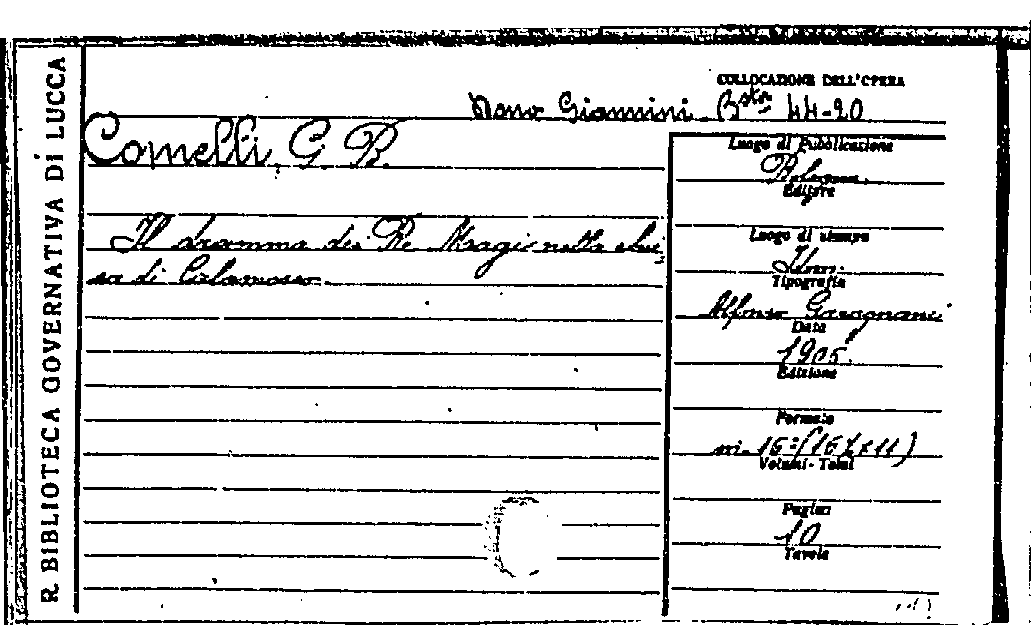 R. BIBLIOTECA GOVERNATIVA DI LUCCA
COLLOCAZIONE DELL'OPERA
Giannini Bsta 44-20
Comelli, G B.
Il dramma dei Re Magi nella chie
sa di Calamosco
Luogo di Pubblicazione
Bologna
Editore
Luogo di stampa
Tipografia
Alfonso Garagnani
Data
1905
Edizione
Formato
in-16=(16 ½ x 11)
Volumi - Tomi
Pagine
10
Tavole